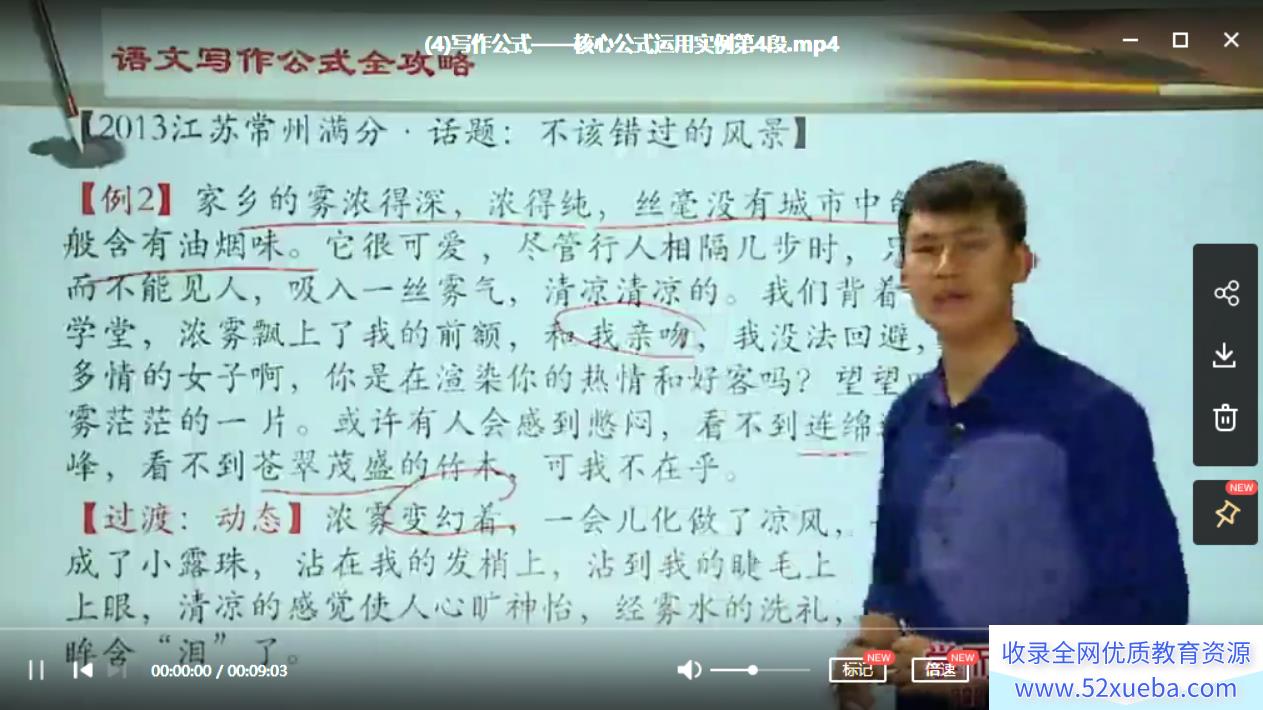 (4)写作公式——核心公式运用实例第4段.mp4
语文写作公式全攻略
【2013江苏常州满分·话题：不该错过的风景】
【例2】家乡的雾浓得深，浓得纯，丝毫没有城市中
般含有油烟味。它很可爱，尽管行人相隔几步时，
而不能见人，吸入一丝雾气，清凉清凉的。我们背着
学堂，浓雾飘上了我的前额，和我亲吻，我没法回避，
多情的女子啊，你是在渲染你的热情和好客吗？望望
雾茫茫的一片。或许有人会感到憋闷，看不到连绵
峰，看不到苍翠茂盛的竹木，可我不在乎。
【过渡：动态】浓雾变幻着，一会儿化做了凉风，
成了小露珠，沾在我的发梢上，沾到我的睫毛上
上眼，清凉的感觉使人心旷神怡，经雾水的洗礼，
眸含“泪”了。
NEW
00:00:00 / 00:09:03
标记
NEW
倍速
NEW
收录全网优质教育资源
www.52xueba.com